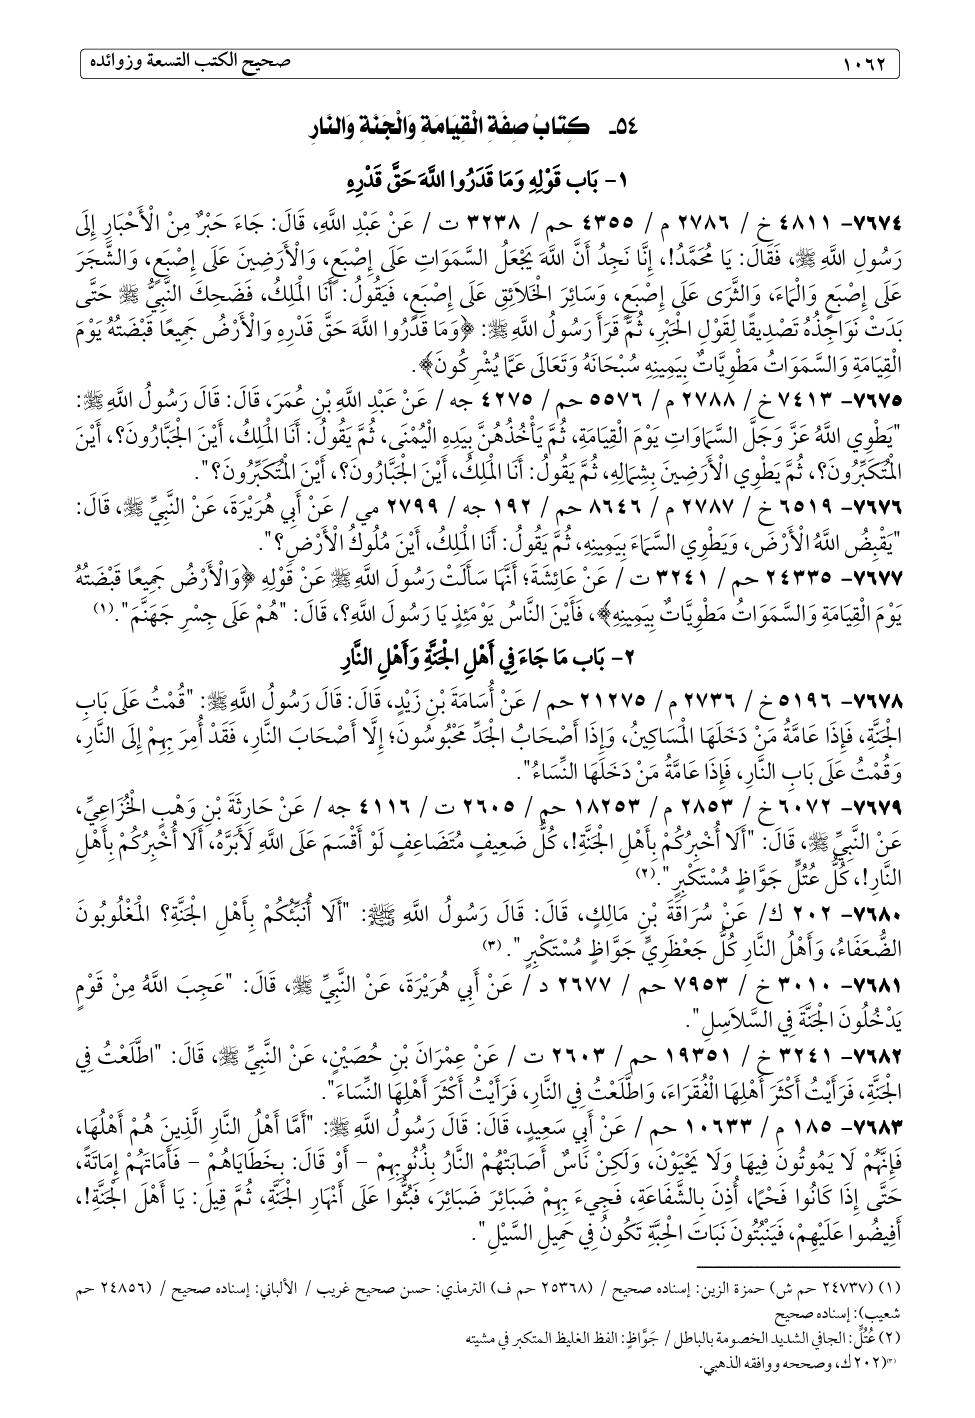 ١٠٦٢ صحيح الكتب التسعة وزوائده
٥٤ـ كِتَابُ صِفَةِ الْقِيَامَةِ وَالْجَنَّةِ وَالنَّارِ
١- بَاب قَوْلِهِ وَمَا قَدَرُوا اللَّهَ حَقَّ قَدْرِهِ
٧٦٧٤- ٤٨١١ خ / ٢٧٨٦ م / ٤٣٥٥ حم / ٣٢٣٨ ت / عَنْ عَبْدِ اللَّهِ، قَالَ: جَاءَ حَبْرٌ مِنْ الْأَحْبَارِ إِلَى
رَسُولِ اللَّهِ ﷺ، فَقَالَ: يَا مُحَمَّدُ!، إِنَّا نَجِدُ أَنَّ اللَّهَ يَجْعَلُ السَّمَوَاتِ عَلَى إِصْبَعٍ، وَالْأَرَضِينَ عَلَى إِصْبَعٍ، وَالشَّجَرَ
عَلَى إِصْبَعٍ وَالْمَاءَ، وَالثَّرَى عَلَى إِصْبَعٍ، وَسَائِرَ الْخَلَائِقِ عَلَى إِصْبَعٍ، فَيَقُولُ: أَنَا الْمَلِكُ، فَضَحِكَ النَّبِيُّ ﷺ حَتَّى
بَدَتْ نَوَاجِذُهُ تَصْدِيقًا لِقَوْلِ الْحَبْرِ، ثُمَّ قَرَأَ رَسُولُ اللَّهِ ﷺ: ﴿وَمَا قَدَرُوا اللَّهَ حَقَّ قَدْرِهِ وَالْأَرْضُ جَمِيعًا قَبْضَتُهُ يَوْمَ
الْقِيَامَةِ وَالسَّمَوَاتُ مَطْوِيَّاتٌ بِيَمِينِهِ سُبْحَانَهُ وَتَعَالَى عَمَّا يُشْرِكُونَ﴾.
٧٦٧٥- ٧٤١٣ خ / ٢٧٨٨ م / ٥٥٧٦ حم / ٤٢٧٥ جه / عَنْ عَبْدِ اللَّهِ بْنِ عُمَرَ، قَالَ: قَالَ رَسُولُ اللَّهِ ﷺ:
"يَطْوِي اللَّهُ عَزَّ وَجَلَّ السَّمَاوَاتِ يَوْمَ الْقِيَامَةِ، ثُمَّ يَأْخُذُهُنَّ بِيَدِهِ الْيُمْنَى، ثُمَّ يَقُولُ: أَنَا الْمَلِكُ، أَيْنَ الْجَبَّارُونَ؟، أَيْنَ
الْمُتَكَبِّرُونَ؟، ثُمَّ يَطْوِي الْأَرَضِينَ بِشِمَالِهِ، ثُمَّ يَقُولُ: أَنَا الْمَلِكُ، أَيْنَ الْجَبَّارُونَ؟، أَيْنَ الْمُتَكَبِّرُونَ؟".
٧٦٧٦- ٦٥١٩ خ / ٢٧٨٧ م / ٨٦٤٦ حم / ١٩٢ جه / ٢٧٩٩ مي / عَنْ أَبِي هُرَيْرَةَ، عَنْ النَّبِيِّ ﷺ، قَالَ:
"يَقْبِضُ اللَّهُ الْأَرْضَ، وَيَطْوِي السَّمَاءَ بِيَمِينِهِ، ثُمَّ يَقُولُ: أَنَا الْمَلِكُ، أَيْنَ مُلُوكُ الْأَرْضِ؟".
٧٦٧٧- ٢٤٣٣٥ حم / ٣٢٤١ ت / عَنْ عَائِشَةَ؛ أَنَّهَا سَأَلَتْ رَسُولَ اللَّهِ ﷺ عَنْ قَوْلِهِ ﴿وَالْأَرْضُ جَمِيعًا قَبْضَتُهُ
يَوْمَ الْقِيَامَةِ وَالسَّمَوَاتُ مَطْوِيَّاتٌ بِيَمِينِهِ﴾، فَأَيْنَ النَّاسُ يَوْمَئِذٍ يَا رَسُولَ اللَّهِ؟، قَالَ: "هُمْ عَلَى جِسْرِ جَهَنَّمَ". (١)
٢- بَاب مَا جَاءَ فِي أَهْلِ الْجَنَّةِ وَأَهْلِ النَّارِ
٧٦٧٨- ٥١٩٦ خ / ٢٧٣٦ م / ٢١٢٧٥ حم / عَنْ أُسَامَةَ بْنِ زَيْدٍ، قَالَ: قَالَ رَسُولُ اللَّهِ ﷺ: "قُمْتُ عَلَى بَابِ
الْجَنَّةِ، فَإِذَا عَامَّةُ مَنْ دَخَلَهَا الْمَسَاكِينُ، وَإِذَا أَصْحَابُ الْجَدِّ مَحْبُوسُونَ؛ إِلَّا أَصْحَابَ النَّارِ، فَقَدْ أُمِرَ بِهِمْ إِلَى النَّارِ،
وَقُمْتُ عَلَى بَابِ النَّارِ، فَإِذَا عَامَّةُ مَنْ دَخَلَهَا النِّسَاءُ".
٧٦٧٩- ٦٠٧٢ خ / ٢٨٥٣ م / ١٨٢٥٣ حم / ٢٦٠٥ ت / ٤١١٦ جه / عَنْ حَارِثَةَ بْنِ وَهْبٍ الْخُزَاعِيِّ،
عَنْ النَّبِيِّ ﷺ، قَالَ: "أَلَا أُخْبِرُكُمْ بِأَهْلِ الْجَنَّةِ!، كُلُّ ضَعِيفٍ مُتَضَاعِفٍ لَوْ أَقْسَمَ عَلَى اللَّهِ لَأَبَرَّهُ، أَلَا أُخْبِرُكُمْ بِأَهْلِ
النَّارِ!، كُلُّ عُتُلٍّ جَوَّاظٍ مُسْتَكْبِرٍ".(٢)
٧٦٨٠- ٢٠٢ ك/ عَنْ سُرَاقَةَ بْنِ مَالِكٍ، قَالَ: قَالَ رَسُولُ اللَّهِ ﷺ: "أَلَا أُنَبِّئُكُمْ بِأَهْلِ الْجَنَّةِ؟ الْمَغْلُوبُونَ
الضُّعَفَاءُ، وَأَهْلُ النَّارِ كُلُّ جَعْظَرِيٍّ جَوَّاظٍ مُسْتَكْبِرٍ". (٣)
٧٦٨١- ٣٠١٠ خ / ٧٩٥٣ حم / ٢٦٧٧ د / عَنْ أَبِي هُرَيْرَةَ، عَنْ النَّبِيِّ ﷺ، قَالَ: "عَجِبَ اللَّهُ مِنْ قَوْمٍ
يَدْخُلُونَ الْجَنَّةَ فِي السَّلَاسِلِ".
٧٦٨٢- ٣٢٤١ خ / ١٩٣٥١ حم / ٢٦٠٣ ت / عَنْ عِمْرَانَ بْنِ حُصَيْنٍ، عَنْ النَّبِيِّ ﷺ، قَالَ: "اطَّلَعْتُ فِي
الْجَنَّةِ، فَرَأَيْتُ أَكْثَرَ أَهْلِهَا الْفُقَرَاءَ، وَاطَّلَعْتُ فِي النَّارِ، فَرَأَيْتُ أَكْثَرَ أَهْلِهَا النِّسَاءَ".
٧٦٨٣- ١٨٥ م / ١٠٦٣٣ حم / عَنْ أَبِي سَعِيدٍ، قَالَ: قَالَ رَسُولُ اللَّهِ ﷺ: "أَمَّا أَهْلُ النَّارِ الَّذِينَ هُمْ أَهْلُهَا،
فَإِنَّهُمْ لَا يَمُوتُونَ فِيهَا وَلَا يَحْيَوْنَ، وَلَكِنْ نَاسٌ أَصَابَتْهُمْ النَّارُ بِذُنُوبِهِمْ – أَوْ قَالَ: بِخَطَايَاهُمْ – فَأَمَاتَهُمْ إِمَاتَةً،
حَتَّى إِذَا كَانُوا فَحْمًا، أُذِنَ بِالشَّفَاعَةِ، فَجِيءَ بِهِمْ ضَبَائِرَ ضَبَائِرَ، فَبُثُّوا عَلَى أَنْهَارِ الْجَنَّةِ، ثُمَّ قِيلَ: يَا أَهْلَ الْجَنَّةِ!،
أَفِيضُوا عَلَيْهِمْ، فَيَنْبُتُونَ نَبَاتَ الْحِبَّةِ تَكُونُ فِي حَمِيلِ السَّيْلِ".
(١) (٢٤٧٣٧ حم ش) حمزة الزين: إسناده صحيح / (٢٥٣٦٨ حم ف) الترمذي: حسن صحيح غريب / الألباني: إسناده صحيح / (٢٤٨٥٦ حم
شعيب): إسناده صحيح
(٢) عُتُلٍّ: الجافي الشديد الخصومة بالباطل / جَوَّاظٍ: الفظ الغليظ المتكبر في مشيته
(٣)(٢٠٢ ك، وصححه ووافقه الذهبي.